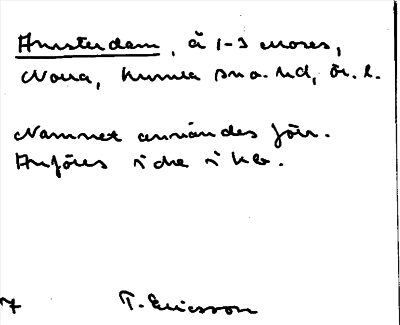 Amsterdam, å 1-3 Moses,
Nora, Kumla sn o. hd, Ör. l.
Namnet användes förr.
Anföres icke i kb.
7 T. Ericsson